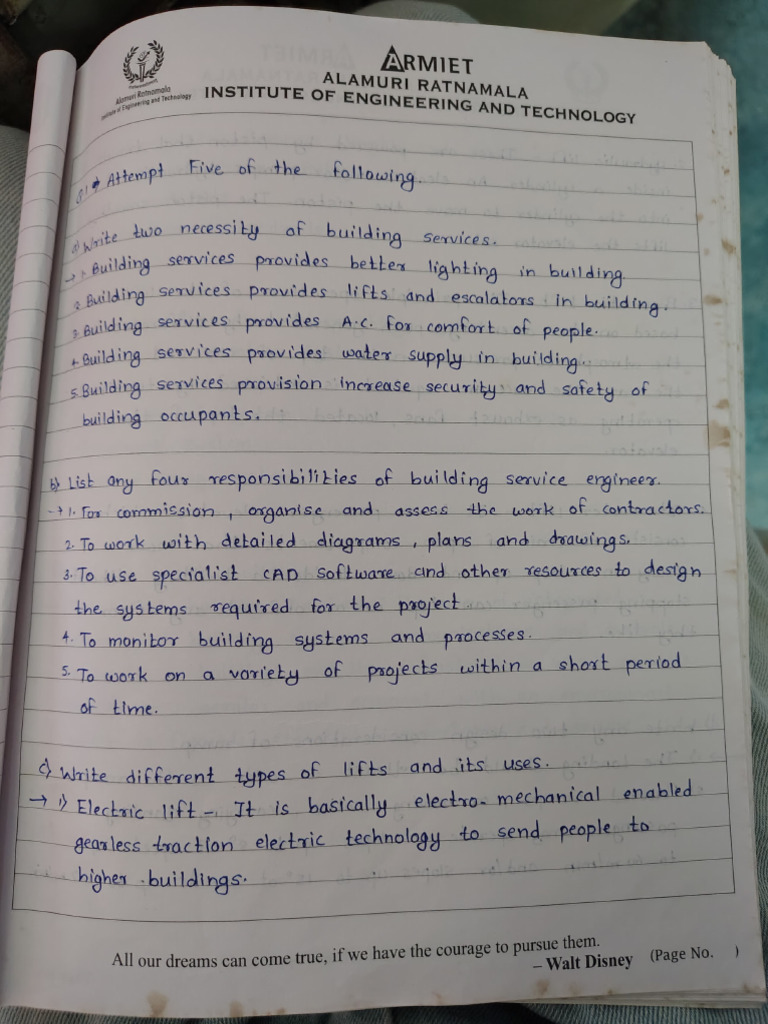 ARMIET
ALAMURI RATNAMALA
INSTITUTE OF ENGINEERING AND TECHNOLOGY
Alamuri Ratnamala
Institute of Engineering and Technology
Q.1 Attempt Five of the following.
a) Write two necessity of building services.
→ 1. Building services provides better lighting in building
2. Building services provides lifts and escalators in building.
3. Building services provides A.C. for comfort of people.
4. Building services provides water supply in building.
5. Building services provision increase security and safety of
building occupants.
b) List any four responsibilities of building service engineer.
→ 1. For commission, organise and assess the work of contractors.
2. To work with detailed diagrams, plans and drawings.
3. To use specialist CAD software and other resources to design
the systems required for the project.
4. To monitor building systems and processes.
5. To work on a variety of projects within a short period
of time.
c) Write different types of lifts and its uses.
→ 1) Electric lift - It is basically electro-mechanical enabled
gearless traction electric technology to send people to
higher buildings.
All our dreams can come true, if we have the courage to pursue them.
– Walt Disney (Page No. )